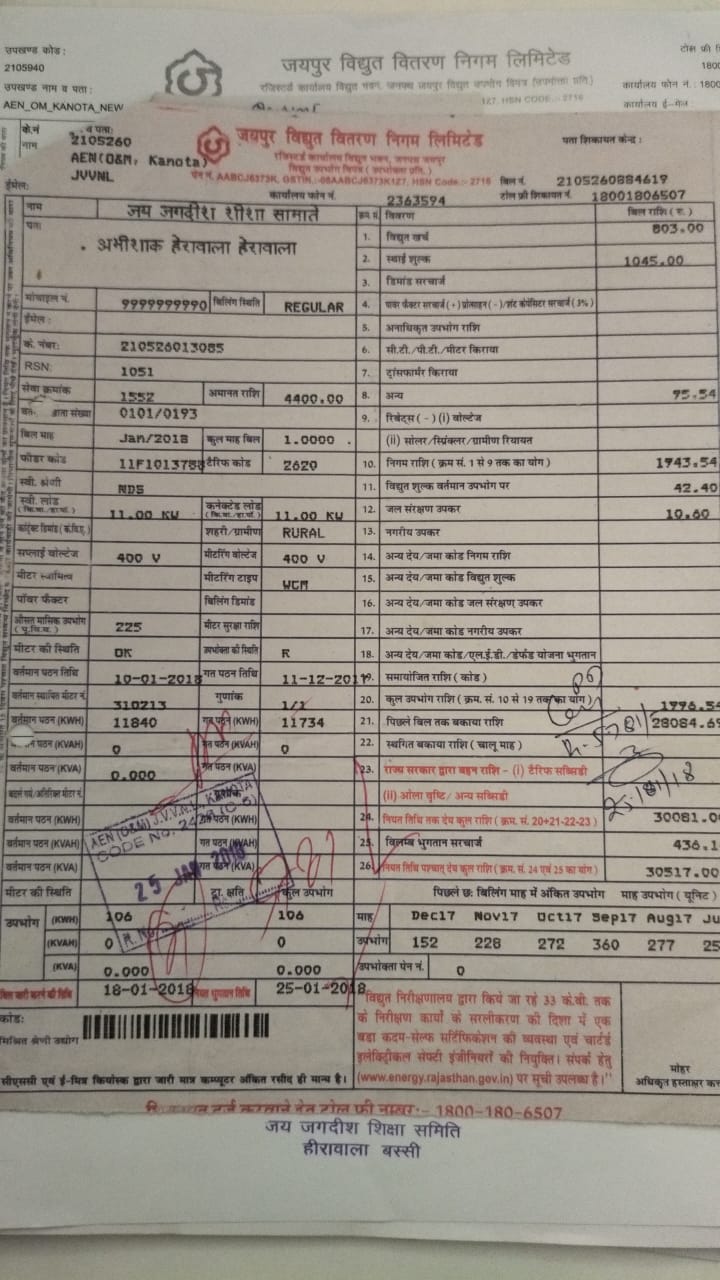 उपखण्ड कोड :
2105940
उपखण्ड नाम व पता :
AEN_OM_KANOTA_NEW
जयपुर विद्युत वितरण निगम लिमिटेड
टोल फ्री
1800
कार्यालय फोन नं. : 1800
कार्यालय ई-मेल
के.नं
नाम
व पता:
2105260
AEN(O&M, Kanota)
JVVNL
जयपुर विद्युत वितरण निगम लिमिटेड
रजिस्टर्ड कार्यालय विद्युत भवन, जनपथ जयपुर
विद्युत उपभोग विपत्र (उपभोक्ता प्रति.)
पता शिकायत केन्द्र :
बिल नं. 2105260884619
टोल फ्री शिकायत नं. 18001806507
ईमेल:
कार्यालय फोन नं. 2363594
नाम जय जगदीश शीशा सामाते
पता
अभीशाक हेरावाला हेरावाला
क्रम सं. विवरण बिल राशि ( रु. )
1. विद्युत खर्च 803.00
2. स्थाई शुल्क 1045.00
3. डिमांड सरचार्ज
मोबाइल नं. 9999999990 बिलिंग स्थिति REGULAR
4. पावर फैक्टर सरचार्ज (+) प्रोत्साहन (-)/शंट कंपेसिटर सरचार्ज (3%)
ईमेल :
5. अनाधिकृत उपभोग राशि
के. नंबर: 210526013085
6. सी.टी./पी.टी./मीटर किराया
RSN: 1051
7. ट्रांसफार्मर किराया
सेवा क्रमांक 1552 अमानत राशि 4400.00
8. अन्य 95.54
खाता संख्या 0101/0193
9. रिबेट्स ( - ) (i) वोल्टेज
बिल माह Jan/2018 कुल माह बिल 1.0000
(ii) सोलर/स्प्रिंक्लर/ग्रामीण रियायत
फीडर कोड टैरिफ कोड 2620
10. निगम राशि ( क्रम सं. 1 से 9 तक का योग ) 1943.54
स्वी. श्रेणी NDS
11. विद्युत शुल्क वर्तमान उपभोग पर 42.40
स्वी. लोड 11.00 KW कनेक्टेड लोड 11.00 KW
12. जल संरक्षण उपकर 10.60
शहरी/ग्रामीण RURAL
13. नगरीय उपकर
सप्लाई वोल्टेज 400 V मीटरिंग वोल्टेज 400 V
14. अन्य देय/जमा कोड निगम राशि
मीटर स्वामित्व मीटरिंग टाइप WCM
15. अन्य देय/जमा कोड विद्युत शुल्क
पॉवर फैक्टर बिलिंग डिमांड
16. अन्य देय/जमा कोड जल संरक्षण उपकर
औसत मासिक उपभोग 225 मीटर सुरक्षा राशि
17. अन्य देय/जमा कोड नगरीय उपकर
मीटर की स्थिति OK उपभोक्ता की स्थिति R
18. अन्य देय/जमा कोड/एल.ई.डी./डेफर्ड योजना भुगतान
वर्तमान पठन तिथि 10-01-2018 गत पठन तिथि 11-12-2017
19. समायोजित राशि ( कोड )
वर्तमान स्थापित मीटर नं. 310213 गुणांक 1/1
20. कुल उपभोग राशि ( क्रम. सं. 10 से 19 तक का योग ) 1996.54
वर्तमान पठन (KWH) 11840 गत पठन (KWH) 11734
21. पिछले बिल तक बकाया राशि 28084.69
वर्तमान पठन (KVAH) 0 गत पठन (KVAH) 0
22. स्थगित बकाया राशि ( चालू माह )
वर्तमान पठन (KVA) 0.000 गत पठन (KVA)
23. राज्य सरकार द्वारा वहन राशि - (i) टैरिफ सब्सिडी
(ii) ओला वृष्टि/ अन्य सब्सिडी
वर्तमान पठन (KWH) गत पठन (KWH)
24. नियत तिथि तक देय कुल राशि ( क्रम. सं. 20+21-22-23 ) 30081.0
वर्तमान पठन (KVAH) गत पठन (KVAH)
25. विलम्ब भुगतान सरचार्ज 436.1
वर्तमान पठन (KVA) गत पठन (KVA)
26. नियत तिथि पश्चात् देय कुल राशि ( क्रम. सं. 24 एवं 25 का योग ) 30517.00
AEN (O&M) J.V.V.N.L. KANOTA
25 JAN 2018
25/01/18
मीटर की स्थिति ट्रा. क्षति कुल उपभोग
पिछले छः बिलिंग माह में अंकित उपभोग माह उपभोग ( यूनिट )
उपभोग (KWH) 106 106
माह Dec17 Nov17 Oct17 Sep17 Aug17 Ju
(KVAH) 0 0
उपभोग 152 228 272 360 277 25
(KVA) 0.000 0.000
उपभोक्ता पेन नं. 0
बिल जारी करने की तिथि 18-01-2018 नियत भुगतान तिथि 25-01-2018
कोड:
मिश्रित श्रेणी उद्योग
"विद्युत निरीक्षणालय द्वारा किये जा रहे 33 के.वी. तक
के निरीक्षण कार्यो के सरलीकरण की दिशा में एक
बडा कदम-सेल्फ सर्टिफिकेशन की व्यवस्था एवं चार्टर्ड
इलेक्ट्रीकल सेफ्टी इंजीनियरों की नियुक्ति। संपर्क हेतु
(www.energy.rajasthan.gov.in) पर सूची उपलब्ध है।"
मोहर
अधिकृत हस्ताक्षर कर्ता
सीएससी एवं ई-मित्र कियोस्क द्वारा जारी मात्र कम्प्यूटर अंकित रसीद ही मान्य है।
1800-180-6507
जय जगदीश शिक्षा समिति
हीरावाला बस्सी